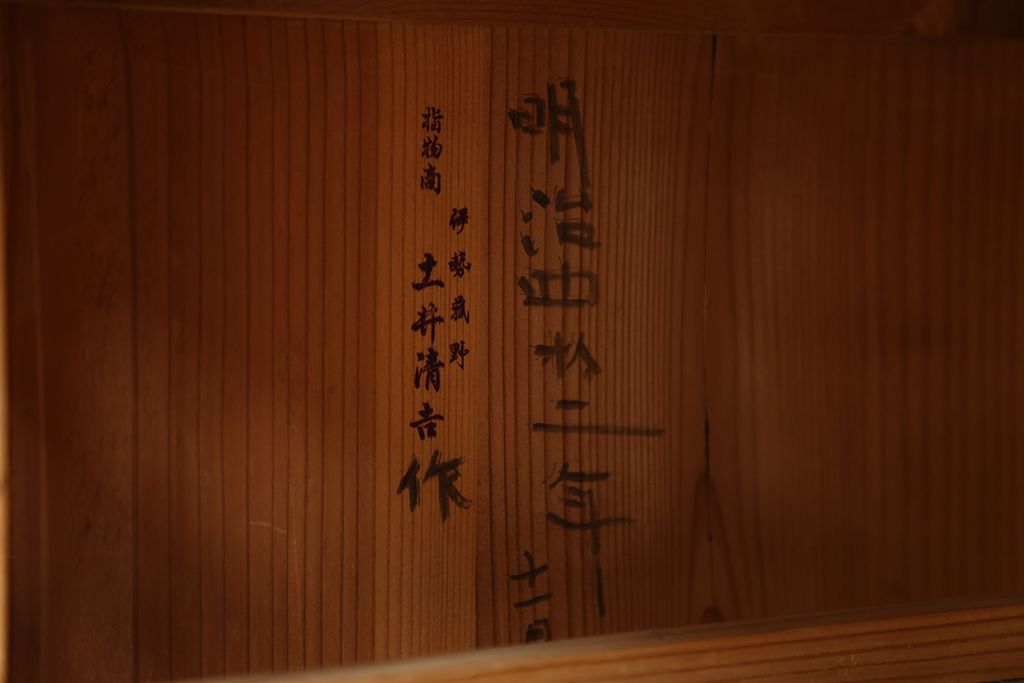 明治四拾二年
十一月
伊勢菰野
指物商 土井清吉作